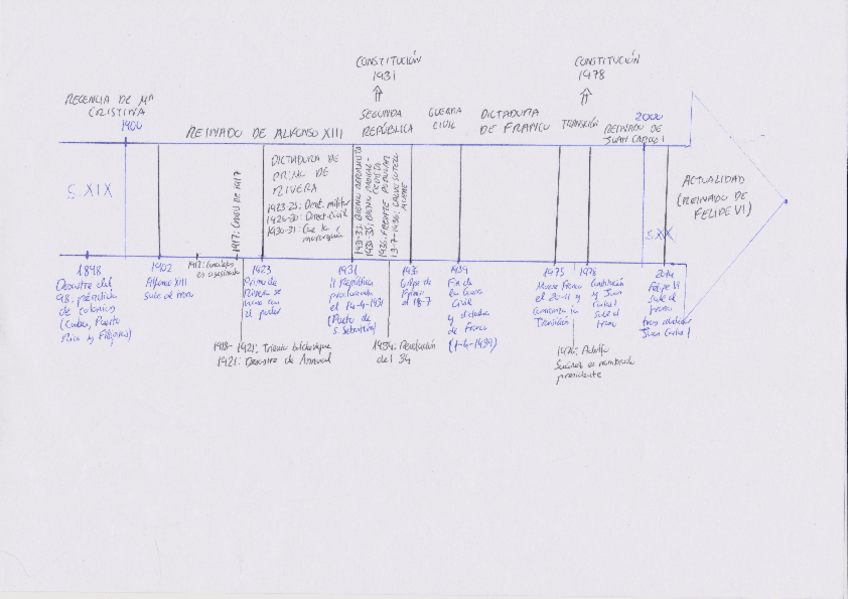 CONSTITUCIÓN
1931
CONSTITUCIÓN
1978
REGENCIA DE Mª
CRISTINA
1900
REINADO DE ALFONSO XIII
SEGUNDA
REPÚBLICA
GUERRA
CIVIL
DICTADURA
DE FRANCO
TRANSICIÓN
2000
REINADO DE
JUAN CARLOS I
S. XIX
1917: CRISIS DE 1917
DICTADURA DE
PRIMO DE
RIVERA
1923-25: Direct. militar
1925-30: Direct. civil
1930-31: Cae la
monarquía
1931-33: BIENIO REFORMISTA
1936: FRENTE POPULAR
13-7-1936: CALVO SOTELO
MUERE
S.XX
ACTUALIDAD
(REINADO DE
FELIPE VI)
1898
Desastre del
98: pérdida
de colonias
(Cuba, Puerto
Rico y Filipinas)
1902
Alfonso XIII
sube al trono
1912: Canalejas
es asesinado
1923
Primo de
Rivera se
hace con
el poder
1931
II República
proclamada
el 14-4-1931
(Pacto de
S. Sebastián)
1936
Golpe de
el 18-7
1939
Fin de
la Guerra
Civil
y dictadura
de Franco
(1-4-1939)
1975
Muere Franco
el 20-11 y
comienza la
Transición
1978
Constitución
y Juan
Carlos I
sube al
trono
2014
Felipe VI
sube al
trono
tras abdicar
Juan Carlos I
1918-1921: Trienio bolchevique
1921: Desastre de Annual
1934: Revolución
del 34
1976: Adolfo
Suárez es nombrado
presidente